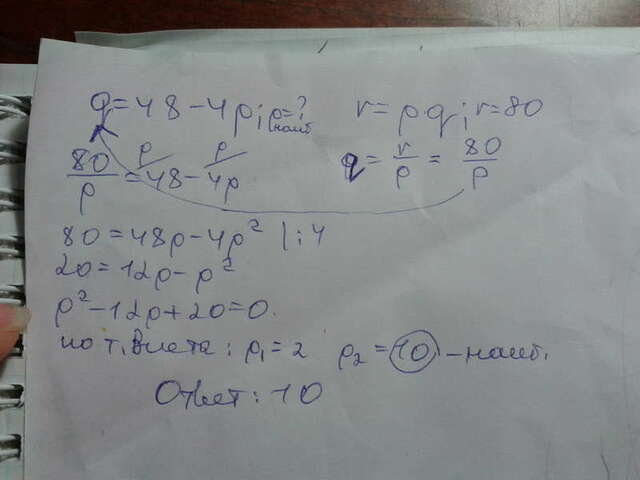 q = 48 - 4p; p = ? наиб
r = pq; r = 80
80/p = 48 - 4p
p p
q = r/p = 80/p
80 = 48p - 4p² |:4
20 = 12p - p²
p² - 12p + 20 = 0.
по т. Виета: p₁ = 2 p₂ = 10 - наиб.
Ответ: 10